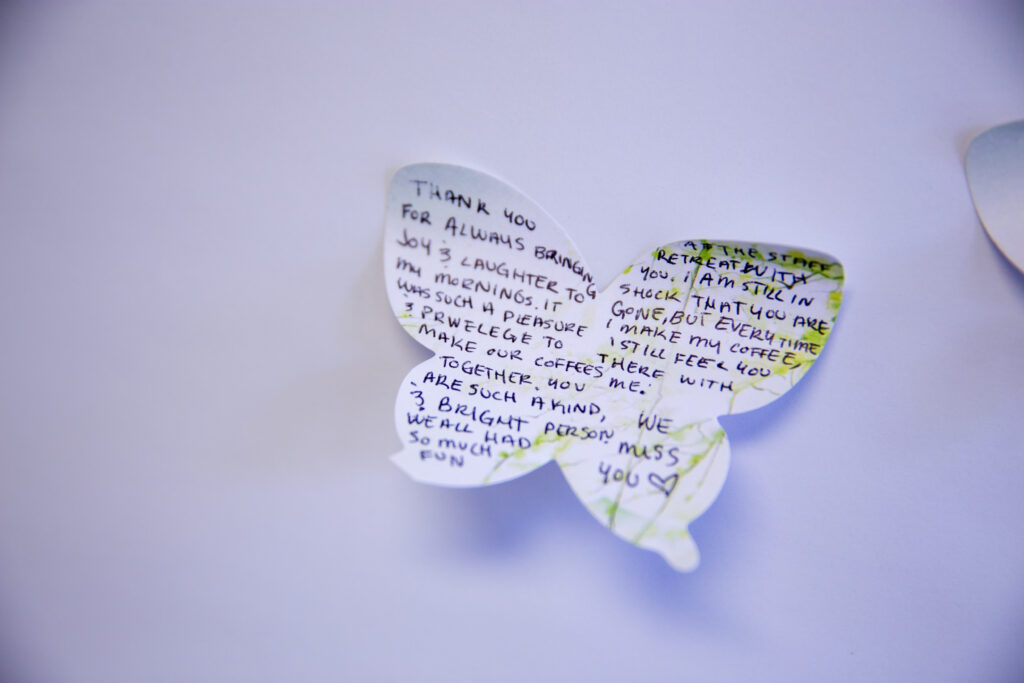 THANK YOU
FOR ALWAYS BRINGING
JOY & LAUGHTER TO
MY MORNINGS. IT
WAS SUCH A PLEASURE
& PRWELEGE TO
MAKE OUR COFFEES
TOGETHER. YOU
ARE SUCH A KIND,
& BRIGHT PERSON
WE ALL HAD
SO MUCH
FUN
AT THE STAFF
RETREAT WITH
YOU. I AM STILL IN
SHOCK THAT YOU ARE
GONE, BUT EVERY TIME
I MAKE MY COFFEE,
I STILL FEEL YOU
THERE WITH
ME.
WE
MISS
YOU ♡